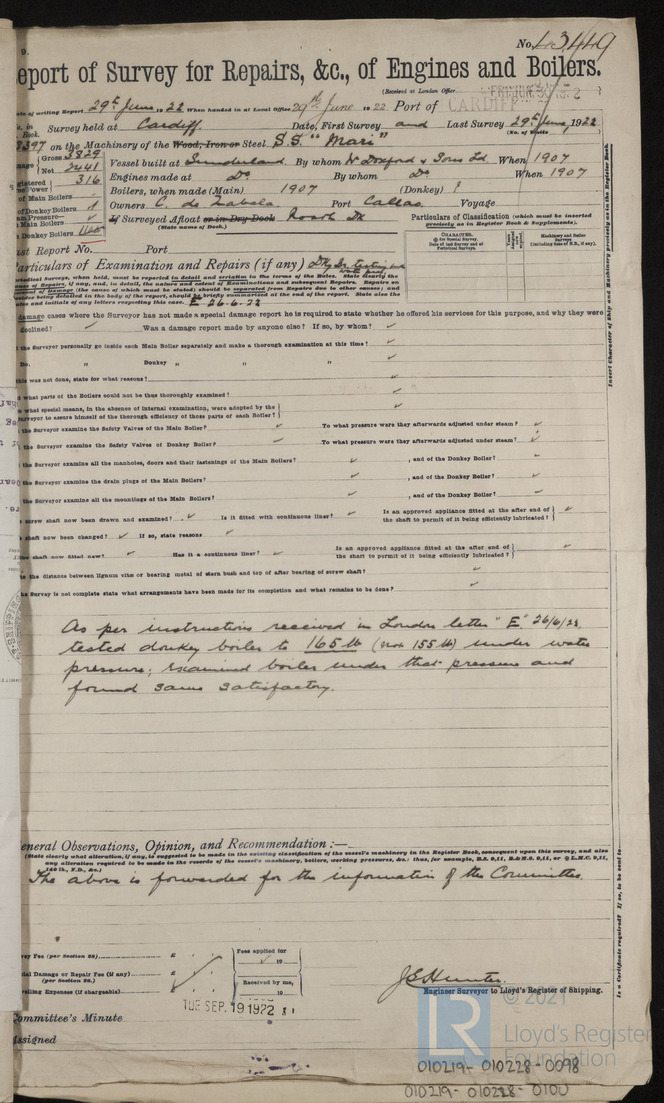 9.
No. 43449
eport of Survey for Repairs, &c., of Engines and Boilers.
(Received at London Office
ate of writing Report 29th June 1922 When handed in at Local Office 29th June 1922 Port of CARDIFF
Survey held at Cardiff. Date, First Survey and Last Survey 29th June, 1922
Book. (No. of Visits
8397 on the Machinery of the Wood, Iron or Steel S.S. "Mari"
Gross 3829
Net 2441
Vessel built at Sunderland. By whom W Doxford & Sons Ld When 1907
egistered 316
Engines made at Do. By whom Do When 1907
Boilers, when made (Main) 1907 (Donkey) ?
of Main Boilers
Owners C. de Zabala Port Callao. Voyage
of Donkey Boilers 1
If Surveyed Afloat or in Dry Dock Roath Dk
(State name of Dock.)
Main Boilers
Donkey Boilers
Particulars of Classification (which must be inserted
precisely as in Register Book & Supplements).
CHARACTER.
Machinery and Boiler
Surveys
(including date of N.B., if any).
st Report No. Port
articulars of Examination and Repairs (if any)
E 26-6-22
damage cases where the Surveyor has not made a special damage report he is required to state whether he offered his services for this purpose, and why they were
declined? Was a damage report made by anyone else? If so, by whom?
the Surveyor personally go inside each Main Boiler separately and make a thorough examination at this time?
Do. „ Donkey „ „ „
this was not done, state for what reasons?
what parts of the Boilers could not be thus thoroughly examined?
what special means, in the absence of internal examination, were adopted by the
Surveyor to assure himself of the thorough efficiency of those parts of each Boiler?
the Surveyor examine the Safety Valves of the Main Boiler? To what pressure were they afterwards adjusted under steam?
the Surveyor examine the Safety Valves of Donkey Boiler? To what pressure were they afterwards adjusted under steam?
the Surveyor examine all the manholes, doors and their fastenings of the Main Boilers? , and of the Donkey Boiler?
the Surveyor examine the drain plugs of the Main Boilers? , and of the Donkey Boiler?
the Surveyor examine all the mountings of the Main Boilers? , and of the Donkey Boiler?
screw shaft now been drawn and examined? Is it fitted with continuous liner? Is an approved appliance fitted at the after end of
the shaft to permit of it being efficiently lubricated?
shaft now been changed? If so, state reasons
shaft now fitted new? Has it a continuous liner? Is an approved appliance fitted at the after end of
the shaft to permit of it being efficiently lubricated?
the distance between lignum vitæ or bearing metal of stern bush and top of after bearing of screw shaft?
he Survey is not complete state what arrangements have been made for its completion and what remains to be done?
As per instructions received in London letter "E" 26/6/22
tested donkey boiler to 165 lb (not 155 lb) under water
pressure; examined boiler under that pressure and
found same satisfactory.
eneral Observations, Opinion, and Recommendation :—
(State clearly what alteration, if any, is suggested to be made in the existing classification of the vessel's machinery in the Register Book, consequent upon this survey, and also
any alteration required to be made in the records of the vessel's machinery, boilers, working pressures, &c.: thus, for example, B.S. 9,11, B.&M.S. 9,11, or L.M.C. 9,11,
140 lb., F.D., &c.)
The above is forwarded for the information of the Committee.
vey Fee (per Section 28) £
Fees applied for
19
ial Damage or Repair Fee (if any) £
(per Section 28.)
elling Expenses (if chargeable) £
Received by me,
19
J E Hunter
Engineer Surveyor to Lloyd's Register of Shipping.
TUE. SEP. 19 1922
ommittee's Minute
ssigned
Insert Character of Ship and Machinery precisely as in the Register Book.
Is a Certificate required? If so, to be sent to
LR
© 2021
Lloyd's Register
Foundation
010219-010228-0098
010219-010228-0100